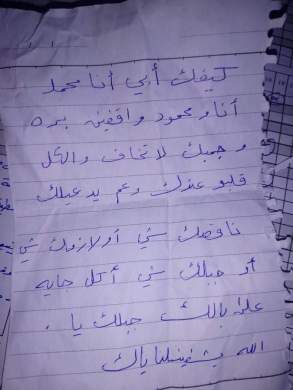 كيفك أبي أنا محمد
أنا و محمود واقفين بره
و جمبك لا تخاف والكل
قلبو عندك وعم يدعيلك
ناقصك شي أو لازمك شي
أو جبلك شي أكل جايه
على بالك جبلك يا .
الله يشفيك